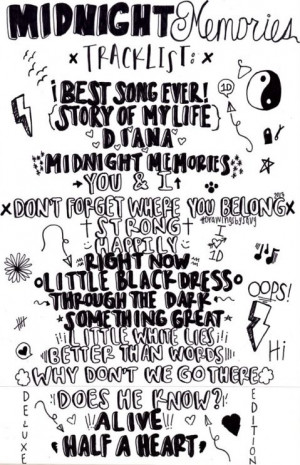 MIDNIGHT Memories
x TRACKLIST: x
¡BEST SONG EVER!
1D
{STORY OF MY LIFE}
DIANA
MIDNIGHT MEMORIES
YOU & I
xDON'T FORGET WHERE YOU BELONGx
2013
†STRONG†
I
HAPPILY
1D
RIGHT NOW
LITTLE BLACK DRESS
OOPS!
~THROUGH THE DARK~
*SOMETHING GREAT*
LITTLE WHITE LIES
Hi
BETTER THAN WORDS
WHY DON'T WE GO THERE
¡DOES HE KNOW?!
ALIVE
HALF A HEART
DELUXE
EDITION